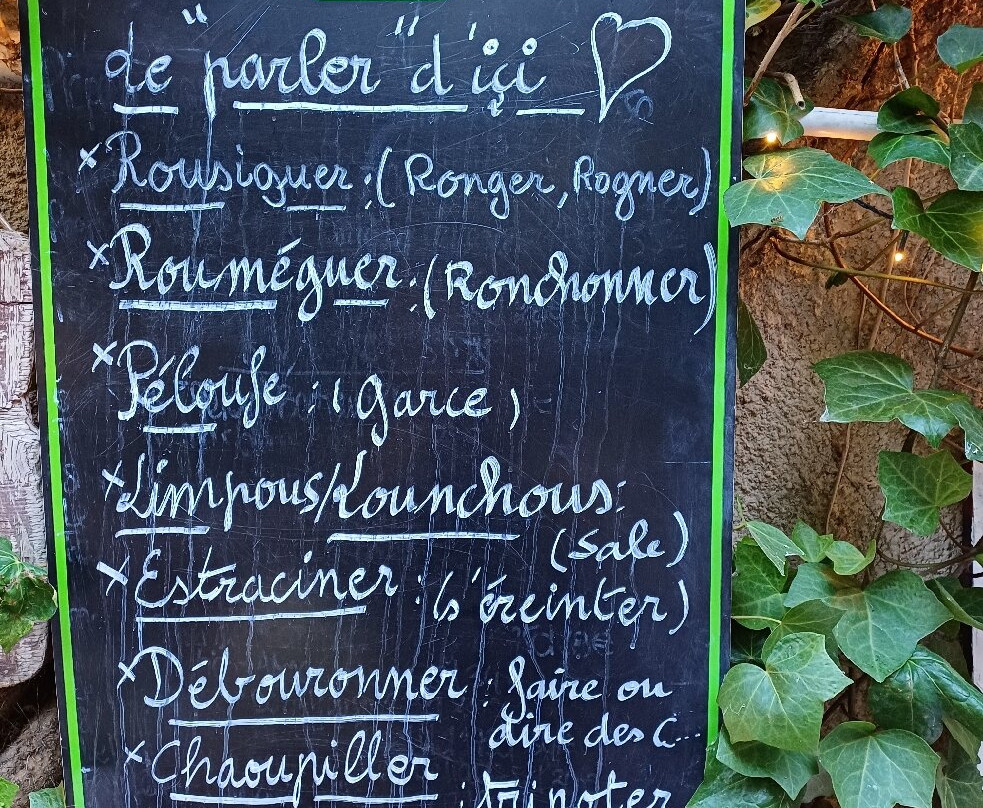 Le "parler" d'içi
x Rousiguer : (Ronger, Rogner)
x Rouméguer : (Ronchonner)
x Pélouse : (garce)
x Limpous/Lounchous :
(Sale)
x Estraciner : (s'éreinter)
x Débouronner : faire ou
dire des c...
x Chaoupiller : tripoter